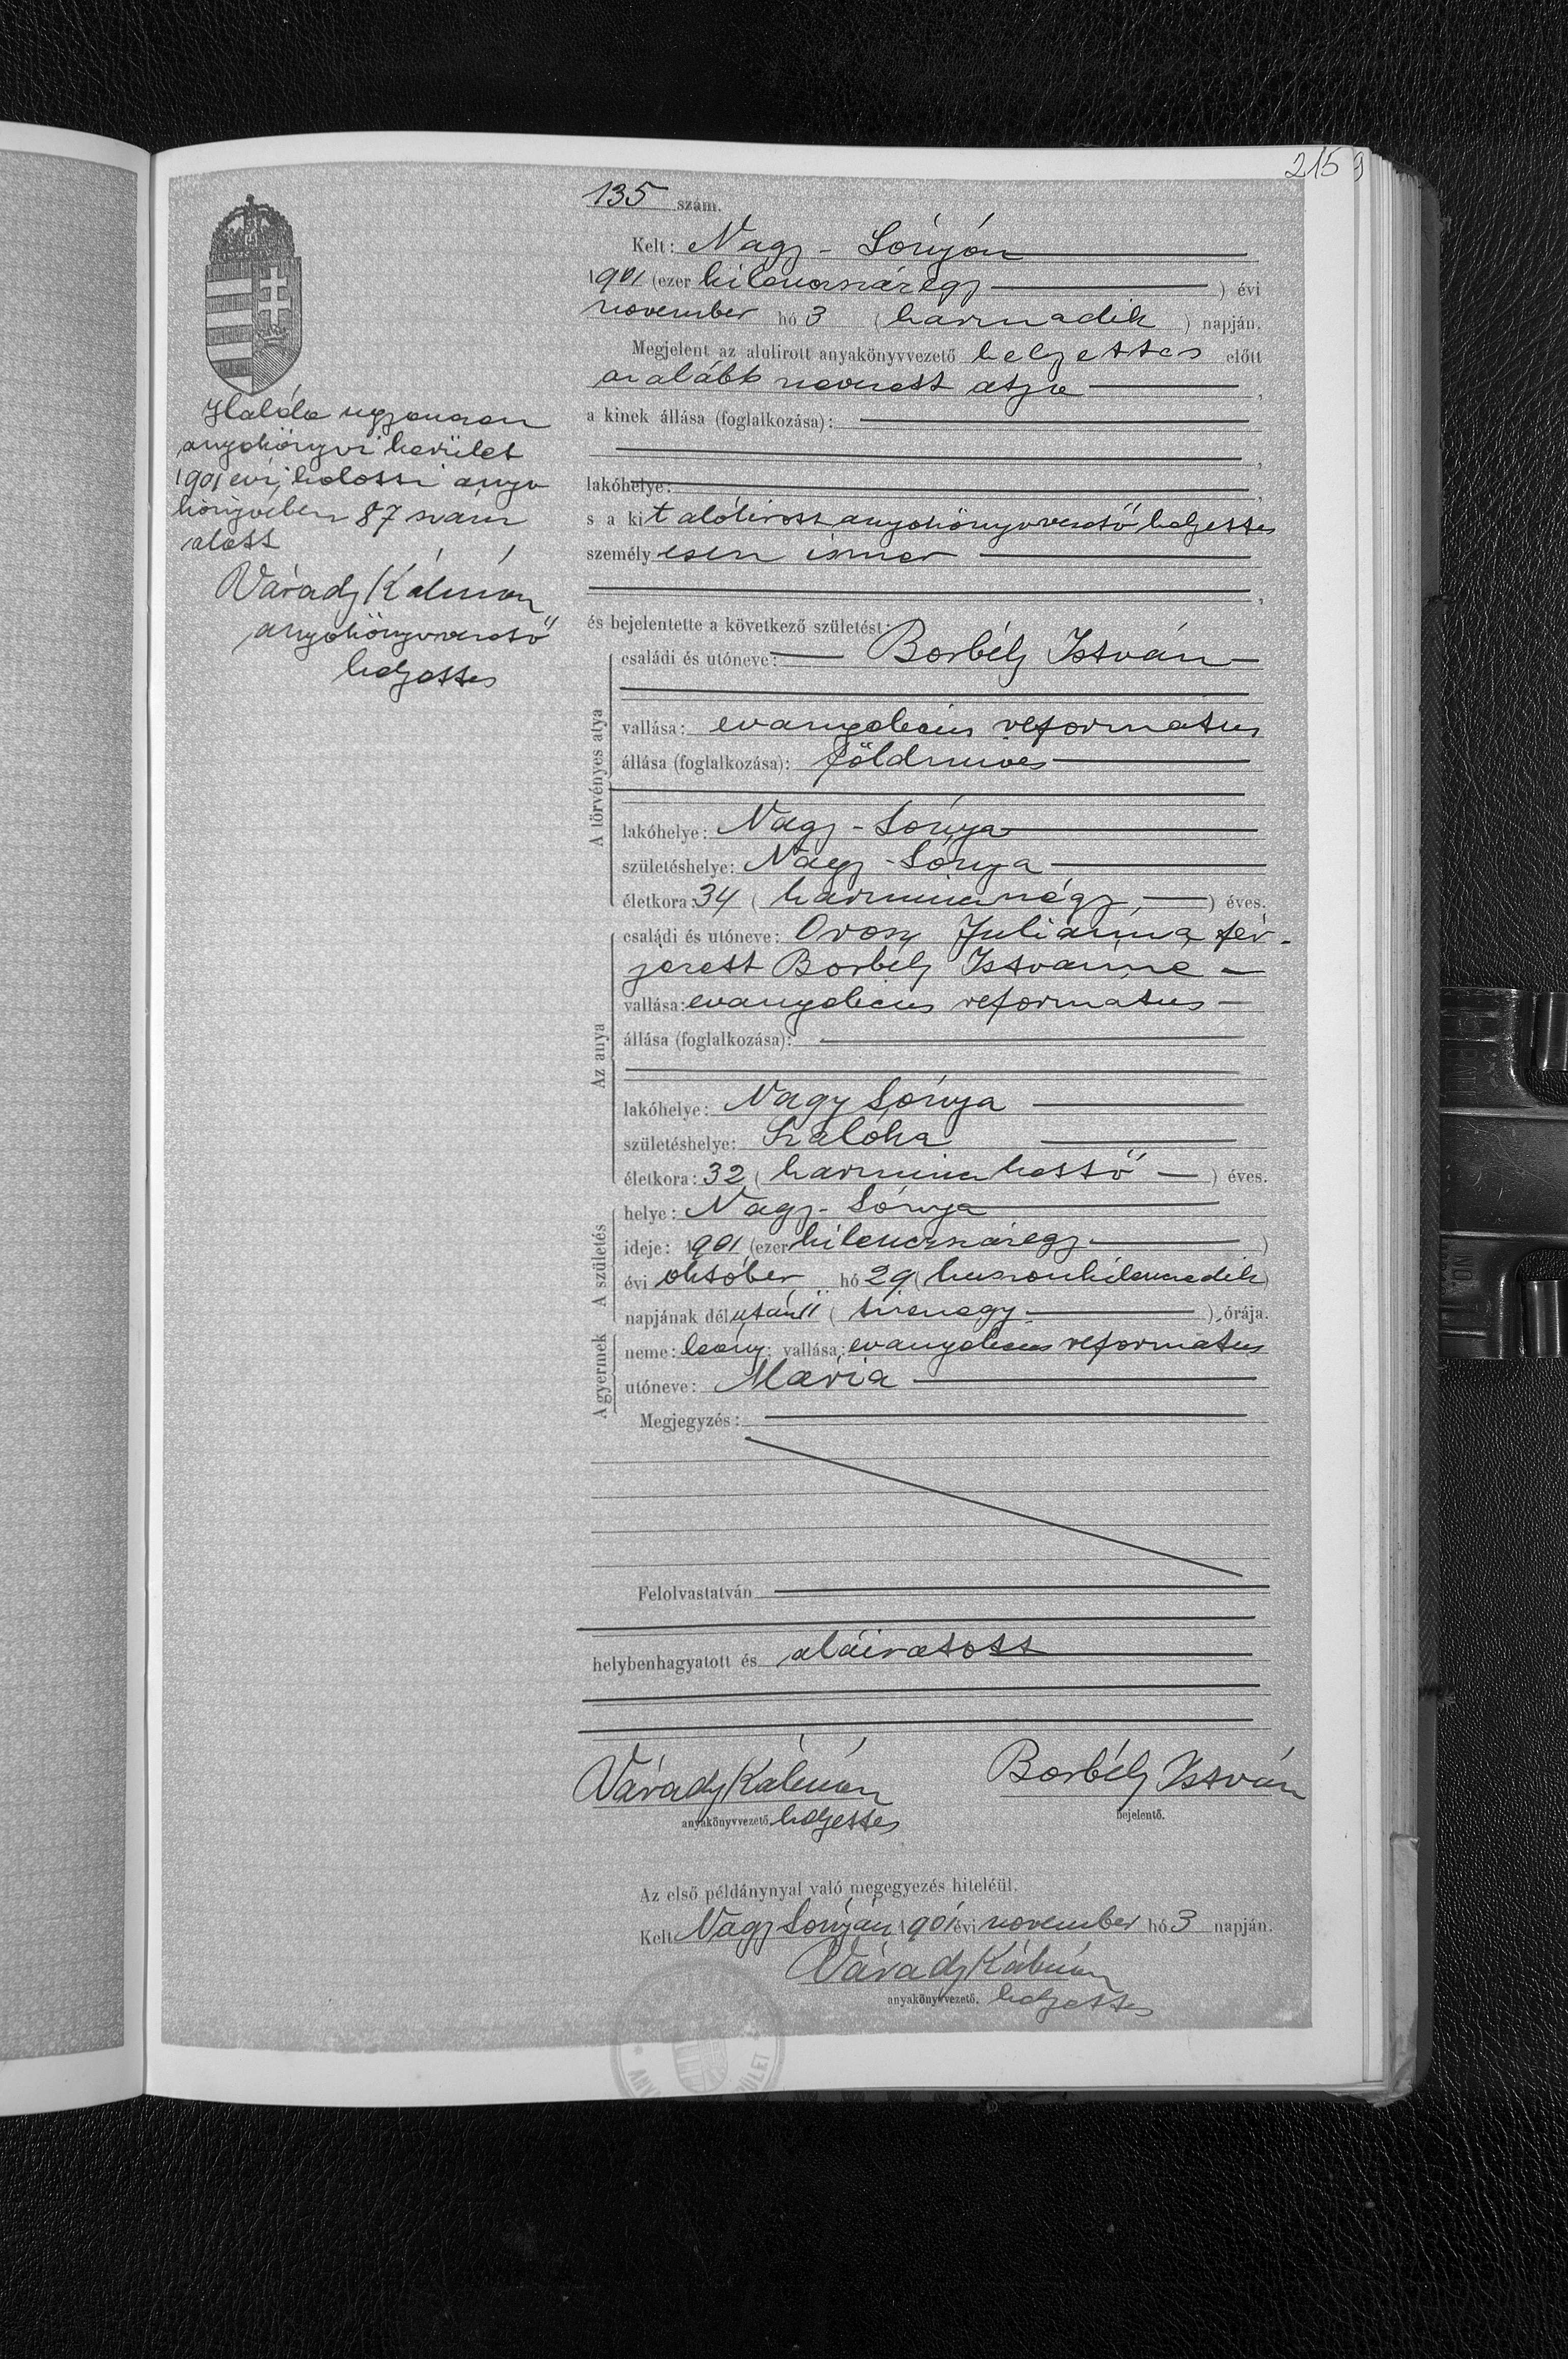 215 9
135 szám.
Kelt: Nagy-Lónyán
1901 (ezer kilenczszázegy ) évi
november hó 3 (harmadik) napján.
Megjelent az alulirott anyakönyvvezető helyettes előtt
az alább nevezett atya ,
a kinek állása (foglalkozása):
,
lakóhelye: ,
s a kit alólirott anyakönyvvezető helyettes
személyesen ismer
,
és bejelentette a következő születést:
A törvényes atya
családi és utóneve: Borbély István
vallása: evangelicus reformatus
állása (foglalkozása): földmives
lakóhelye: Nagy-Lónya
születéshelye: Nagy-Lónya
életkora: 34 (harmincznégy) éves.
Az anya
családi és utóneve: Orosz Juliánna fér-
jezett Borbély Istvánné
vallása: evangelicus reformatus
állása (foglalkozása):
lakóhelye: Nagy Lónya
születéshelye: Szalóka
életkora: 32 (harminczkettő) éves.
A születés
helye: Nagy-Lónya
ideje: 1901 (ezer kilenczszázegy)
évi október hó 29 (huszonkilenczedik)
napjának délután 11 (tizenegy) órája.
A gyermek
neme: leány; vallása: evangelicus reformatus
utóneve: Mária
Megjegyzés:
Felolvastatván
helybenhagyatott és aláiratott
Várady Kálmán Borbély István
anyakönyvvezető helyettes bejelentő.
Az első példánynyal való megegyezés hiteléül.
Kelt Nagy Lónyán 1901 évi november hó 3 napján.
Várady Kálmán
anyakönyvvezető. helyettes
Halála ugyanazon
anyakönyvi kerület
1901 évi halotti anya
könyvében 87 szám
alatt
Várady Kálmán
anyakönyvvezető
helyettes